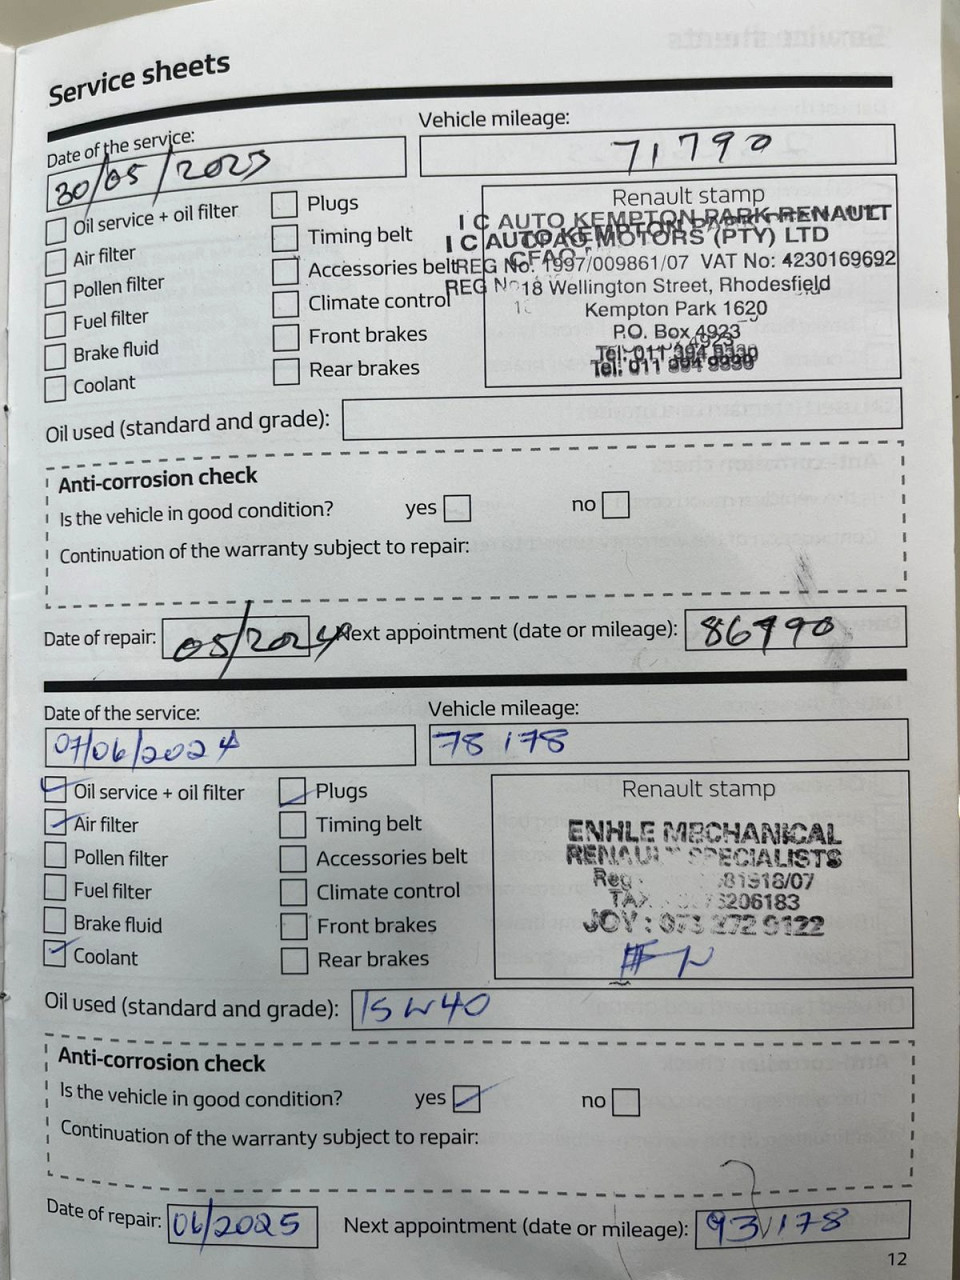 Service sheets
Date of the service:
30/05/2023
Vehicle mileage:
71790
Oil service + oil filter
Air filter
Pollen filter
Fuel filter
Brake fluid
Coolant
Plugs
Timing belt
Accessories belt
Climate control
Front brakes
Rear brakes
Renault stamp
I C AUTO KEMPTON PARK RENAULT
I C AUTO MOTORS (PTY) LTD
REG No. 1997/009861/07 VAT No: 4230169692
REG No 18 Wellington Street, Rhodesfield
Kempton Park 1620
P.O. Box 4923
Tel: 011 394
Oil used (standard and grade):
Anti-corrosion check
Is the vehicle in good condition?
yes
no
Continuation of the warranty subject to repair:
Date of repair:
05/2024
Next appointment (date or mileage):
Date of the service:
07/06/2024
Vehicle mileage:
78178
Oil service + oil filter
Air filter
Pollen filter
Fuel filter
Brake fluid
Coolant
Plugs
Timing belt
Accessories belt
Climate control
Front brakes
Rear brakes
Renault stamp
ENHLE MECHANICAL
RENAULT SPECIALISTS
Reg 81918/07
TAX 206183
JOY : 073 272 9122
Oil used (standard and grade):
15W40
Anti-corrosion check
Is the vehicle in good condition?
yes
no
Continuation of the warranty subject to repair:
Date of repair:
06/2025
Next appointment (date or mileage):
93178
12